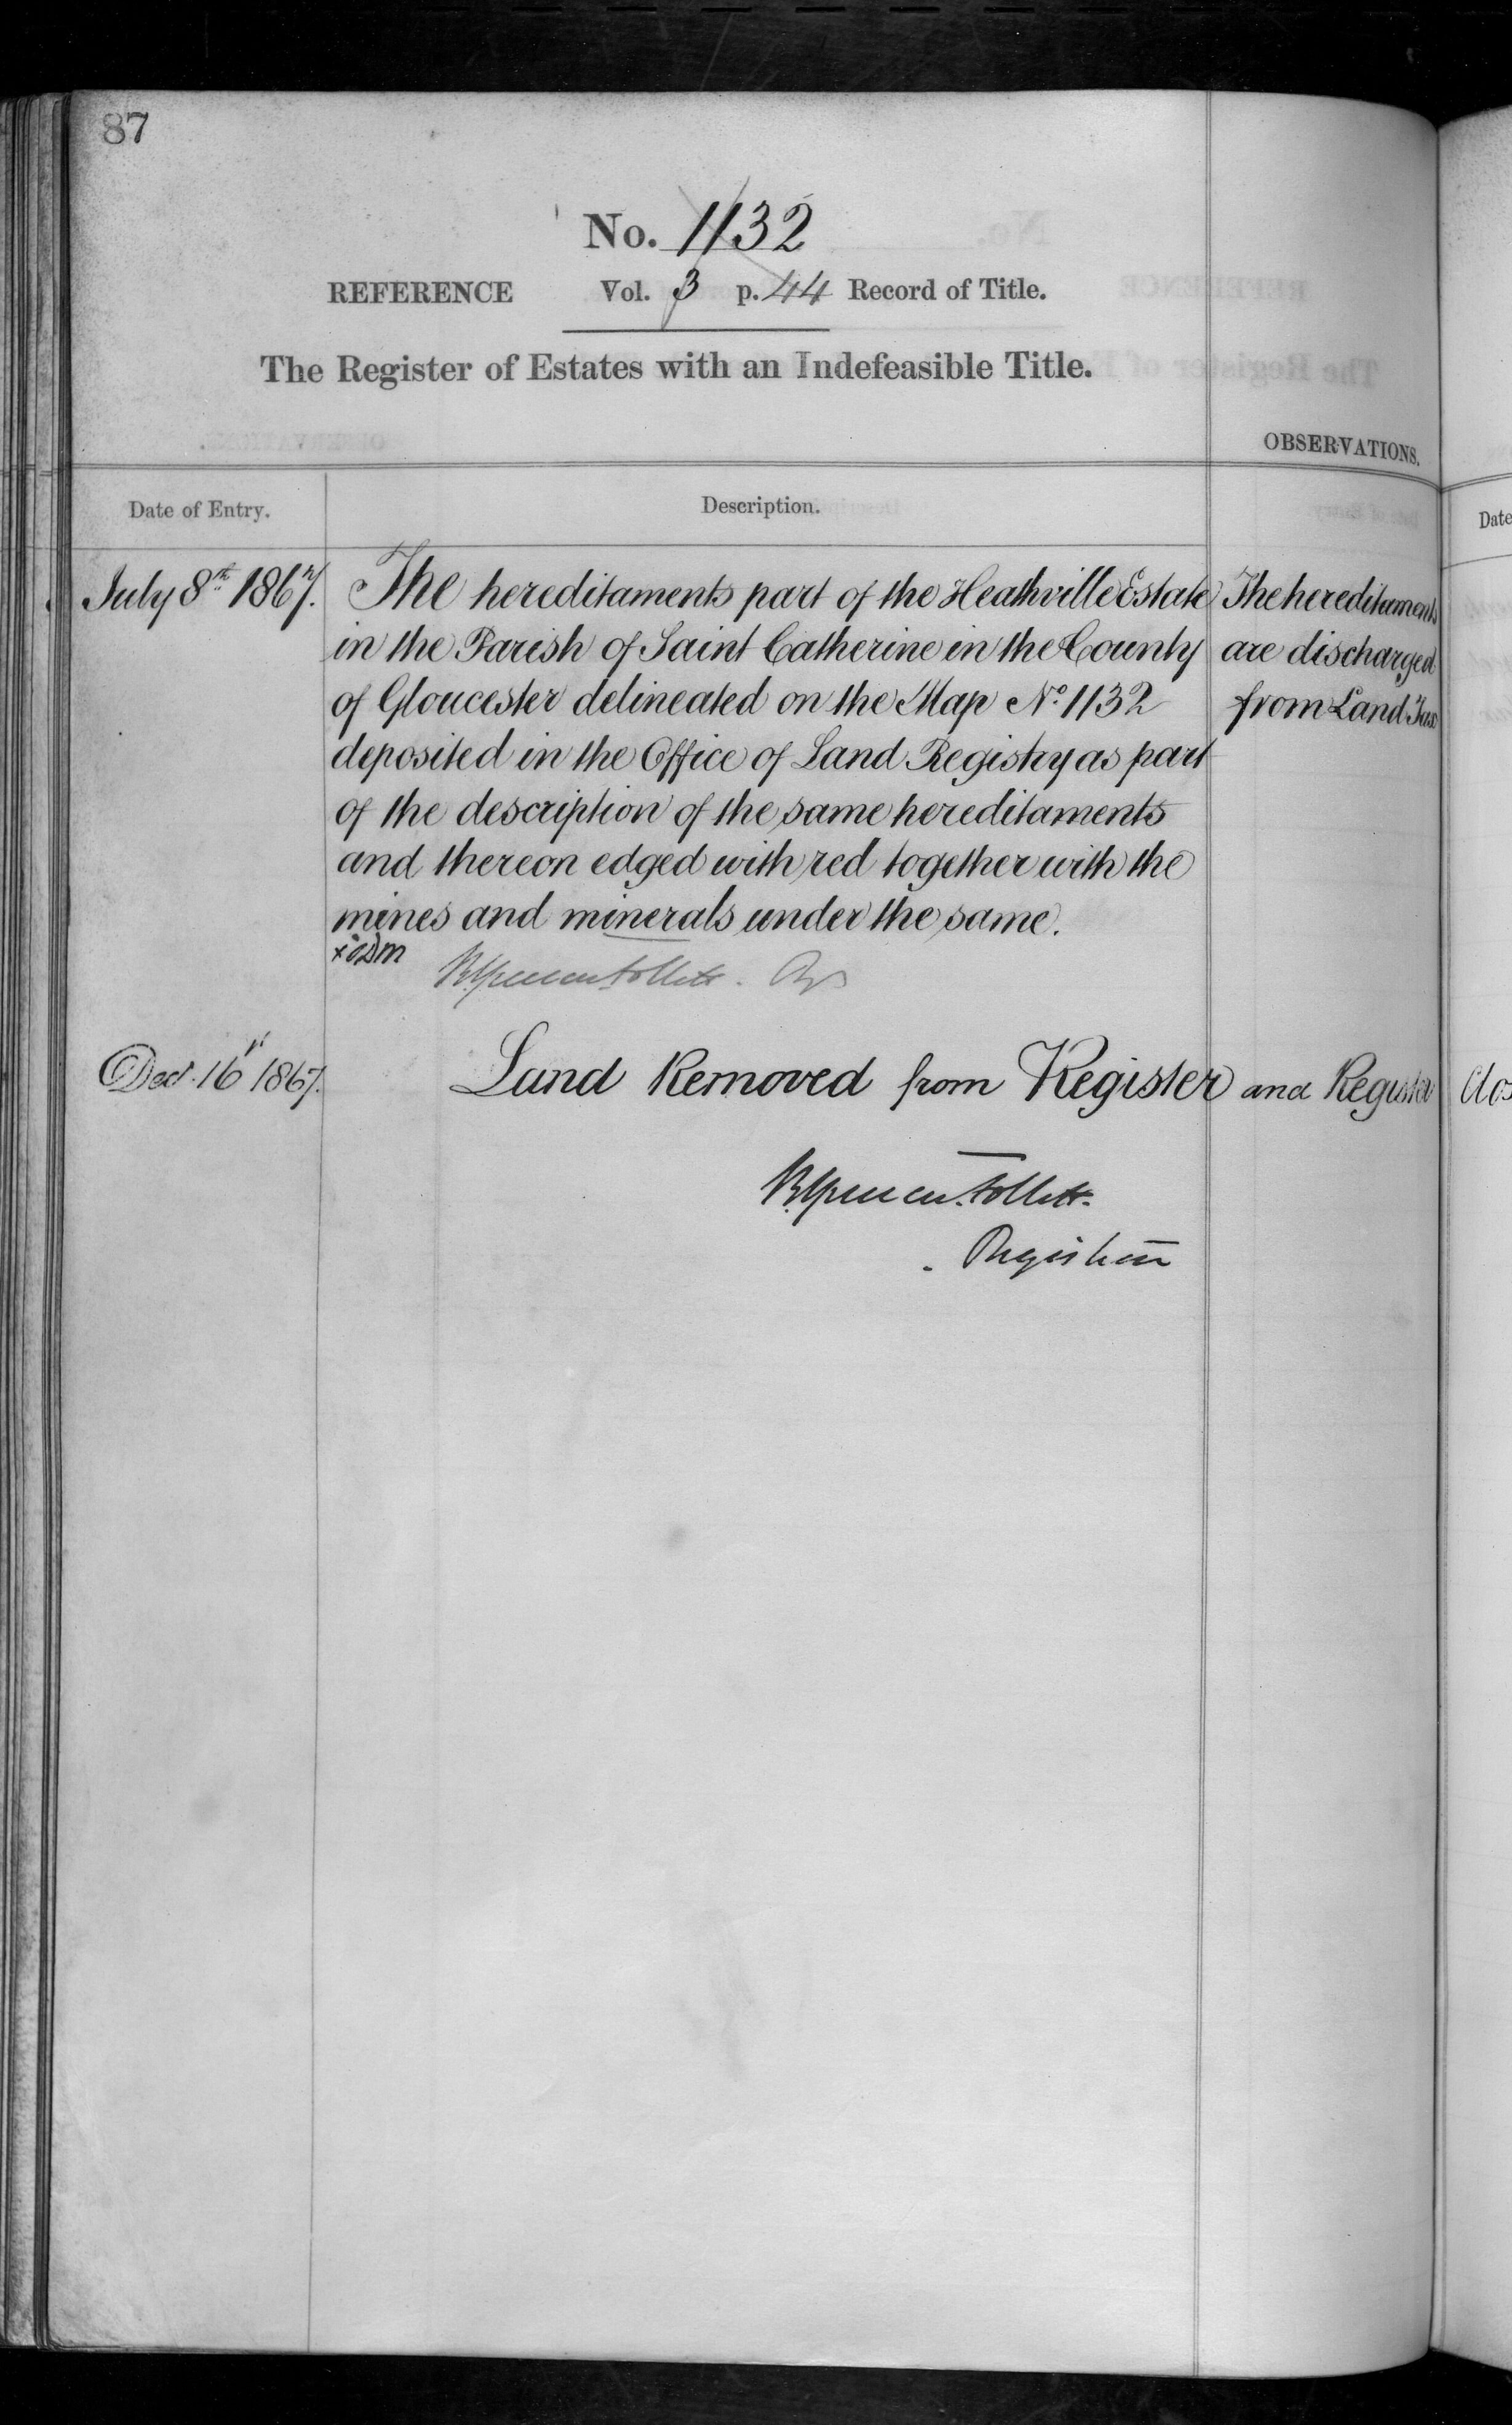 87
No. 1132
REFERENCE Vol. 3 p. 44 Record of Title.
The Register of Estates with an Indefeasible Title.
OBSERVATIONS.
Date of Entry.
Description.
Date
July 8th 1867.
The hereditaments part of the Heathville Estate
in the Parish of Saint Catherine in the County
of Gloucester delineated on the Map No. 1132
deposited in the Office of Land Registry as part
of the description of the same hereditaments
and thereon edged with red together with the
mines and minerals under the same.
The hereditaments
are discharged
from Land Tax
Brent Spencer Follett. Regr
Dec. 16th 1867.
Land Removed from Register and Register Clos
B. Spencer Follett.
Registrar